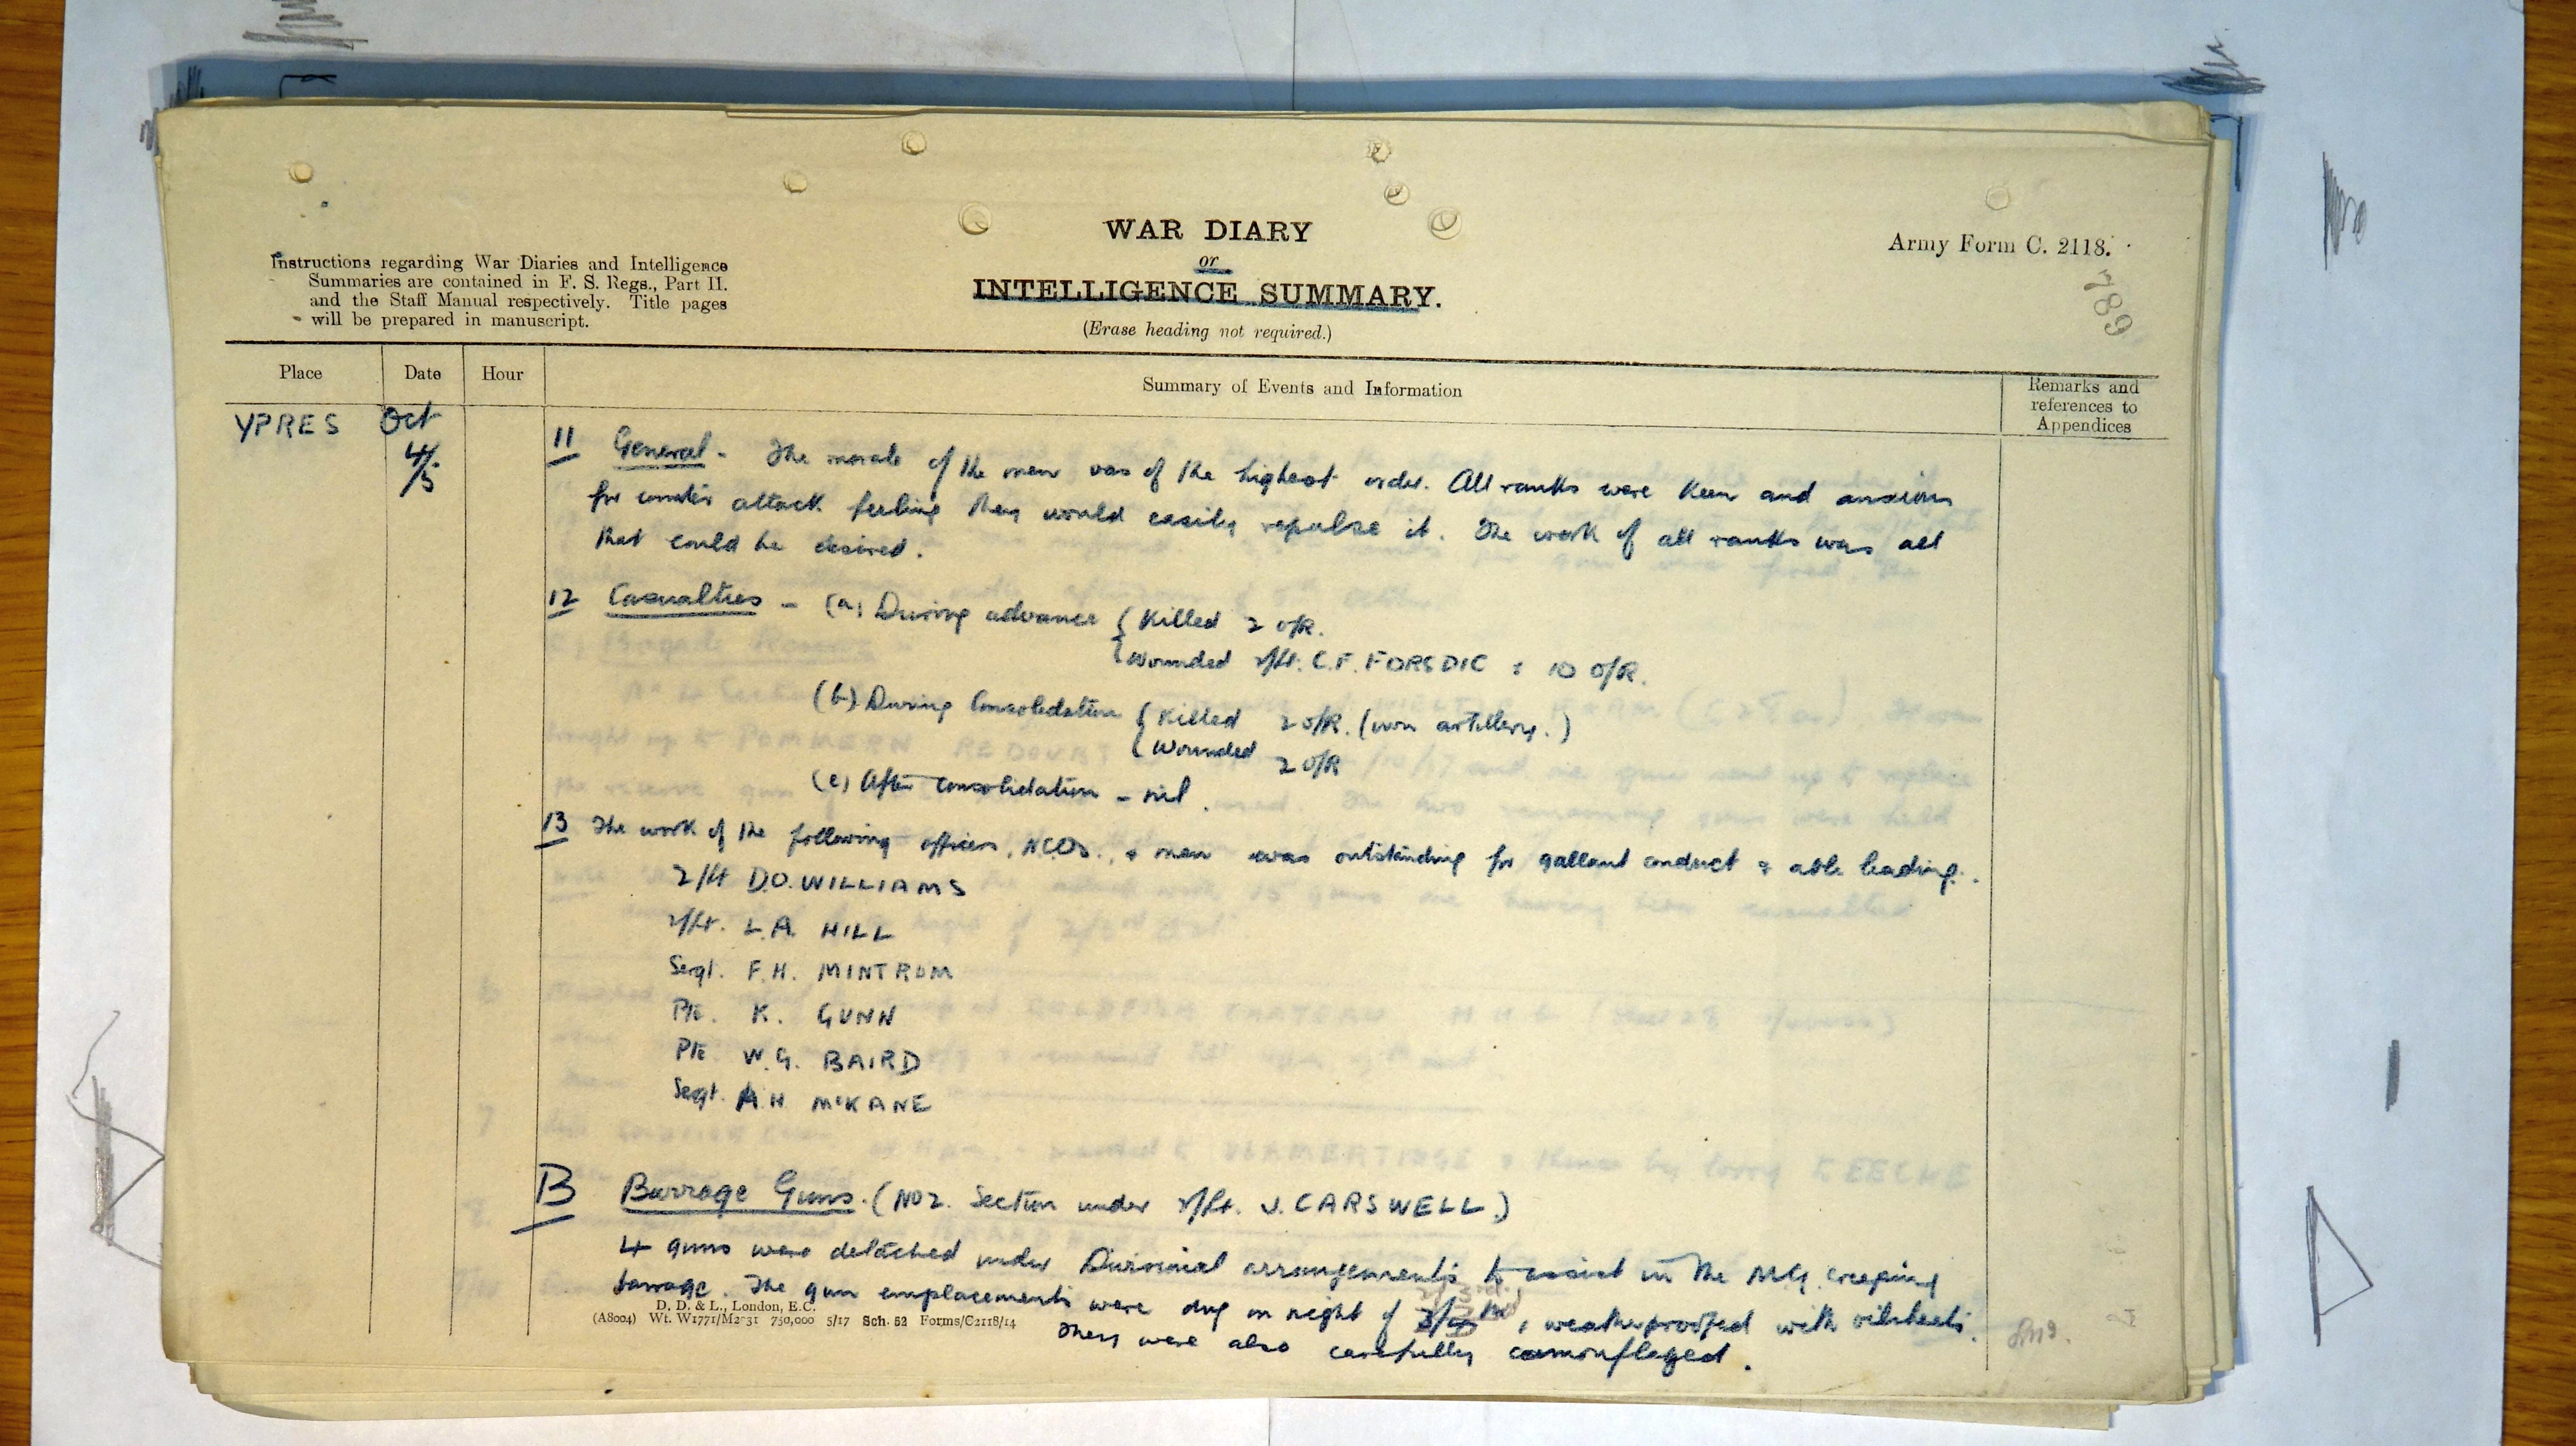 WAR DIARY
or
INTELLIGENCE SUMMARY.
(Erase heading not required.)
Army Form C. 2118.
789
Instructions regarding War Diaries and Intelligence
Summaries are contained in F. S. Regs., Part II.
and the Staff Manual respectively. Title pages
will be prepared in manuscript.
Place Date Hour Summary of Events and Information Remarks and references to Appendices
YPRES Oct 4/5
11 General - The morale of the men was of the highest order. All ranks were keen and anxious
for counter attack feeling they would easily repulse it. The work of all ranks was all
that could be desired.
12 Casualties - (a) During advance { Killed 2 O/R.
{ Wounded 2/Lt. C.F. FORSDIC & 10 O/R.
(b) During Consolidation { Killed 2 O/R. (own artillery.)
{ Wounded 2 O/R
(c) After consolidation - nil.
13 The work of the following officers, NCOs., & men was outstanding for gallant conduct & able leading.
2/Lt D.O. WILLIAMS
2/Lt. L.A. HILL
Sergt. F.H. MINTROM
Pte. K. GUNN
Pte W.G. BAIRD
Sergt. A.H. McKANE
B Barrage Guns. (No 2. Section under 2/Lt. J. CARSWELL)
4 guns were detached under Divisional arrangements to assist in the M.G. creeping
barrage. The gun emplacements were dug on night of 2/3rd, weatherproofed with oilsheets.
They were also carefully camouflaged.
D. D. & L., London, E.C.
(A8004) Wt. W1771/M2-31 750,000 5/17 Sch. 52 Forms/C2118/14